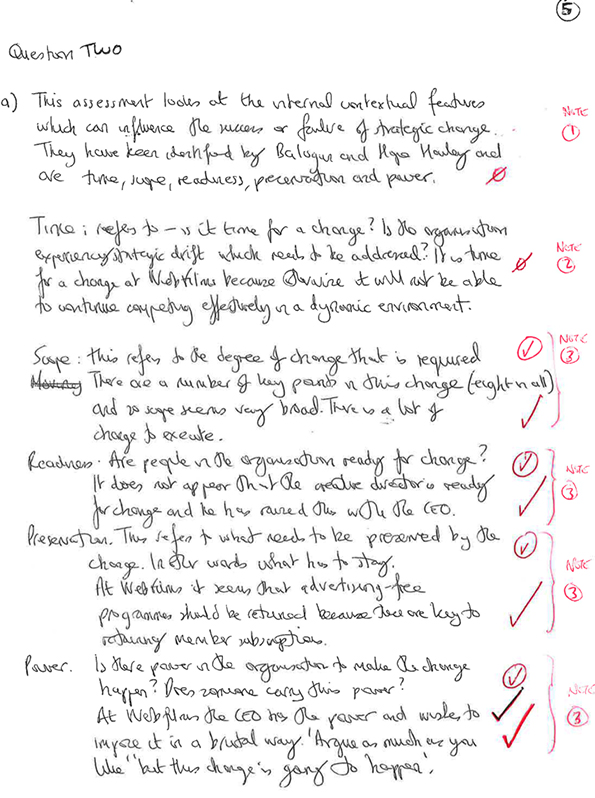 5
Question Two
a) This assessment looks at the internal contextual features
which can influence the success or failure of strategic change.
They have been identified by Balogun and Hope Hailey and
are time, scope, readiness, preservation and power.
NOTE
1
Time: refers to - is it time for a change? Is the organisation
experiency strategic drift which needs to be addressed? It is time
for a change at Webfilms because otherwise it will not be able
to continue competing effectively in a dynamic environment.
NOTE
2
Scope: this refers to the degree of change that is required
There are a number of key points in this change (eight in all)
and so scope seems very broad. There is a lot of
change to execute.
NOTE
3
Readiness: Are people in the organisation ready for change?
It does not appear that the creative director is ready
for change and he has raised this with the CEO.
NOTE
3
Preservation. This refers to what needs to be preserved by the
change. In other words what has to stay.
At Webfilms it seems that advertising-free
programmes should be retained because these are key to
retaining member subscriptions.
NOTE
3
Power. Is there power in the organisation to make the change
happen? Does someone carry this power?
At Webfilms the CEO has the power and wishes to
impose it in a brutal way. 'Argue as much as you
like" but this change is going to happen'.
NOTE
3